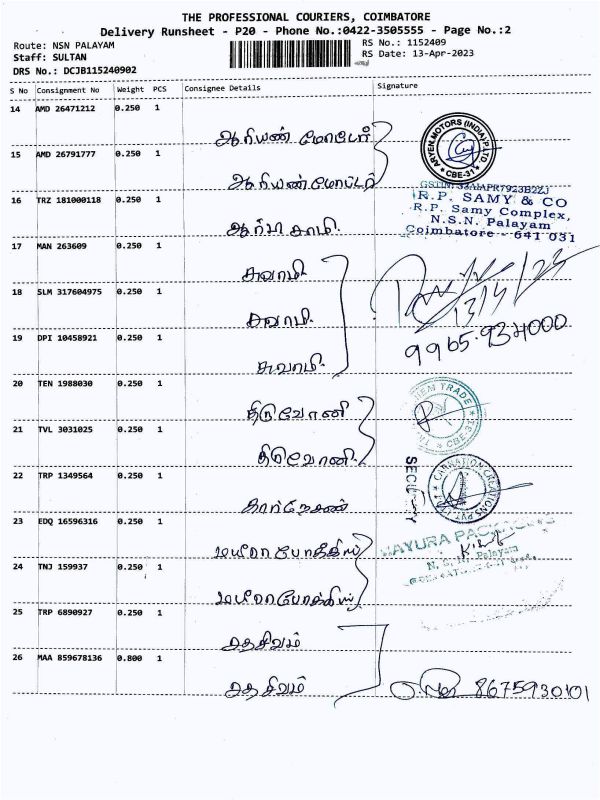 THE PROFESSIONAL COURIERS, COIMBATORE
Delivery Runsheet - P20 - Phone No.:0422-3505555 - Page No.:2
Route: NSN PALAYAM
RS No.: 1152409
Staff: SULTAN
RS Date: 13-Apr-2023
DRS No.: DCJB115240902
S No Consignment No Weight PCS Consignee Details Signature
14 AMD 26471212 0.250 1
ஆரியன் மோட்டர்
ARYEN MOTORS (INDIA) P LTD
* CBE-31 *
15 AMD 26791777 0.250 1
ஆரியன் மோட்டர்
GSTIN: 33AIAPR7923B2ZJ
16 TRZ 181000118 0.250 1
R.P. SAMY & CO
R.P. Samy Complex,
N.S.N. Palayam
ஆர்பி சாமி.
Coimbatore - 641 031
17 MAN 263609 0.250 1
சுவாமி
18 SLM 317604975 0.250 1
13/4/23
சுவாமி.
19 DPI 10458921 0.250 1
9965-934000
சுவாமி.
20 TEN 1988030 0.250 1
திருவோணி
CHEM TRADE
* CBE
21 TVL 3031025 0.250 1
திருவோணி.
22 TRP 1349564 0.250 1
SECURITY
CARNATION CREATIONS PVT LTD
கார்நேசன்
23 EDQ 16596316 0.250 1
மயூரா பேக்கிங்
MAYURA PACKAGING
N. S. N. Palayam
24 TNJ 159937 0.250 1
மயூரா பேக்கிங்
25 TRP 6890927 0.250 1
சதசிவம்
26 MAA 859678136 0.800 1
சதசிவம்
8675930101